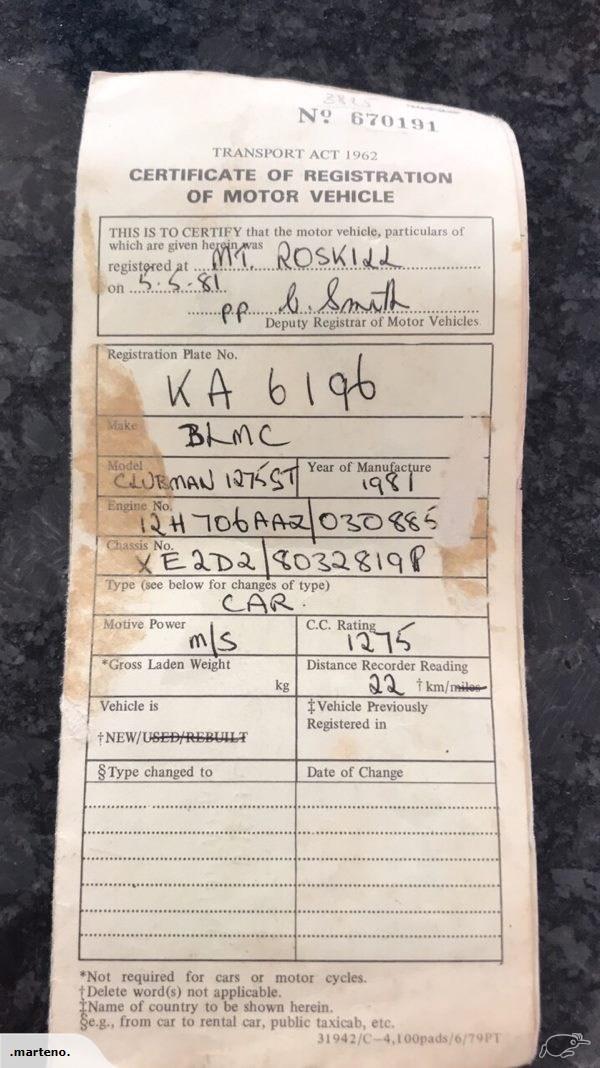 3825
Nº 670191
TRANSPORT ACT 1962
CERTIFICATE OF REGISTRATION
OF MOTOR VEHICLE
THIS IS TO CERTIFY that the motor vehicle, particulars of
which are given herein was
registered at MT. ROSKILL
on 5.5.81.
pp C. Smith
Deputy Registrar of Motor Vehicles
Registration Plate No.
KA 6196
Make
BLMC
Model
CLUBMAN 1275ST
Year of Manufacture
1981
Engine No.
12H706AA2/030885
Chassis No.
XE2D2/8032819P
Type (see below for changes of type)
CAR.
Motive Power
m/s
C.C. Rating
1275
*Gross Laden Weight
kg
Distance Recorder Reading
22 †km/miles
Vehicle is
†NEW/USED/REBUILT
‡Vehicle Previously
Registered in
§Type changed to
Date of Change
*Not required for cars or motor cycles.
†Delete word(s) not applicable.
‡Name of country to be shown herein.
§e.g., from car to rental car, public taxicab, etc.
31942/C—4,100pads/6/79PT
.marteno.